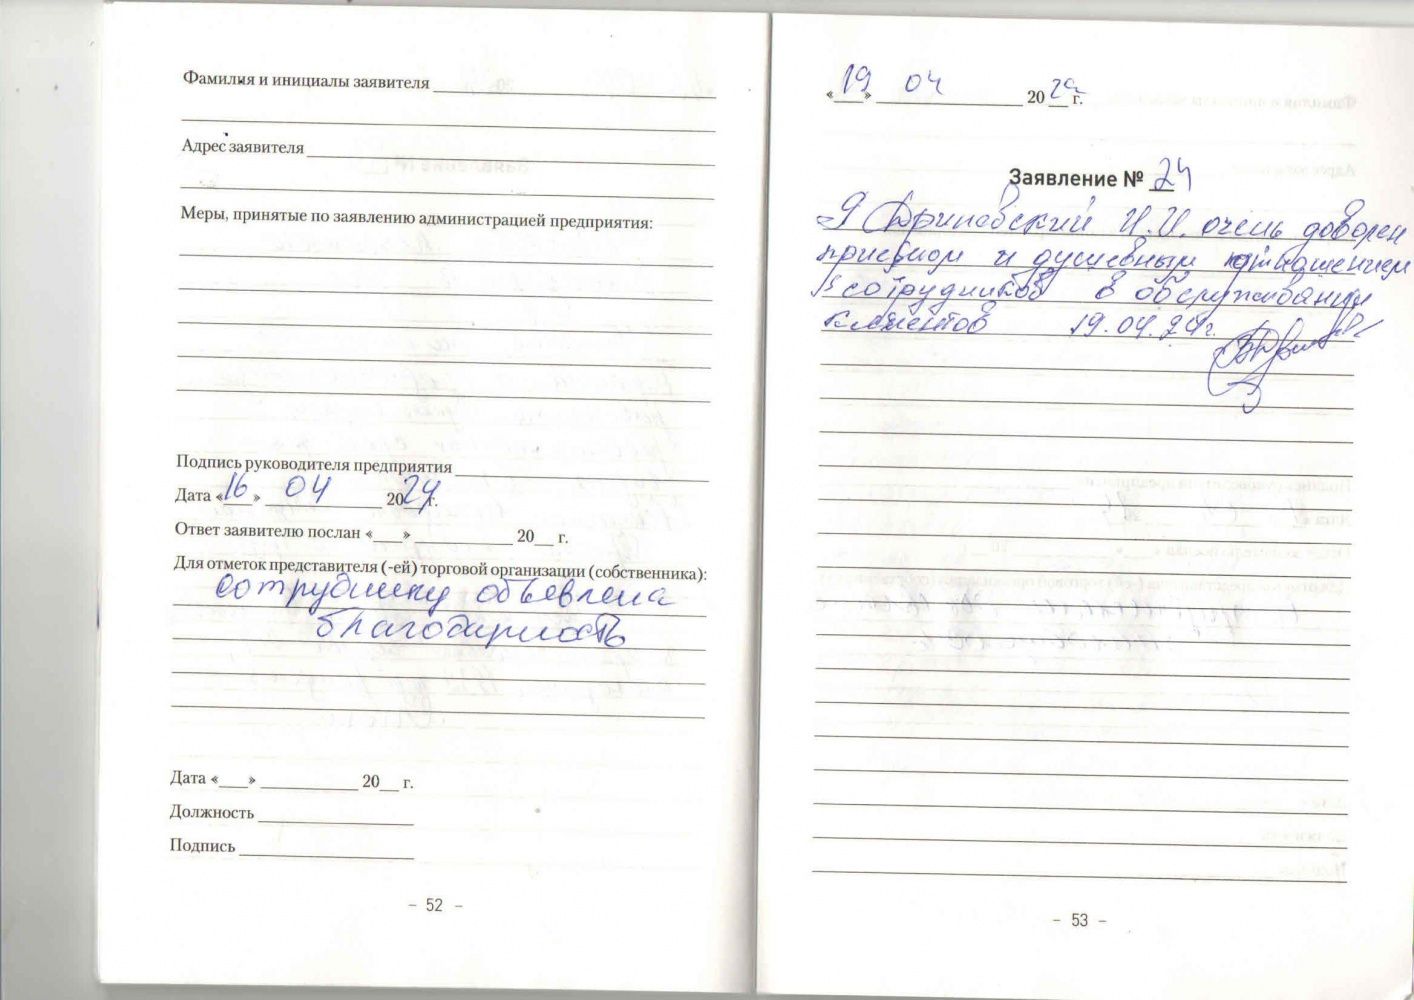 Фамилия и инициалы заявителя
Адрес заявителя
Меры, принятые по заявлению администрацией предприятия:
Подпись руководителя предприятия
Дата «16» 04 2024 г.
Ответ заявителю послан «___» ___ 20__ г.
Для отметок представителя (-ей) торговой организации (собственника):
сотруднику объявлена
благодарность
Дата «___» ___ 20__ г.
Должность
Подпись
- 52 -
«19» 04 2024 г.
Заявление № 24
Я И.И. очень доволен
приемом и душевным отношением
сотрудников в обслуживании
клиентов 19.04.24г.
- 53 -